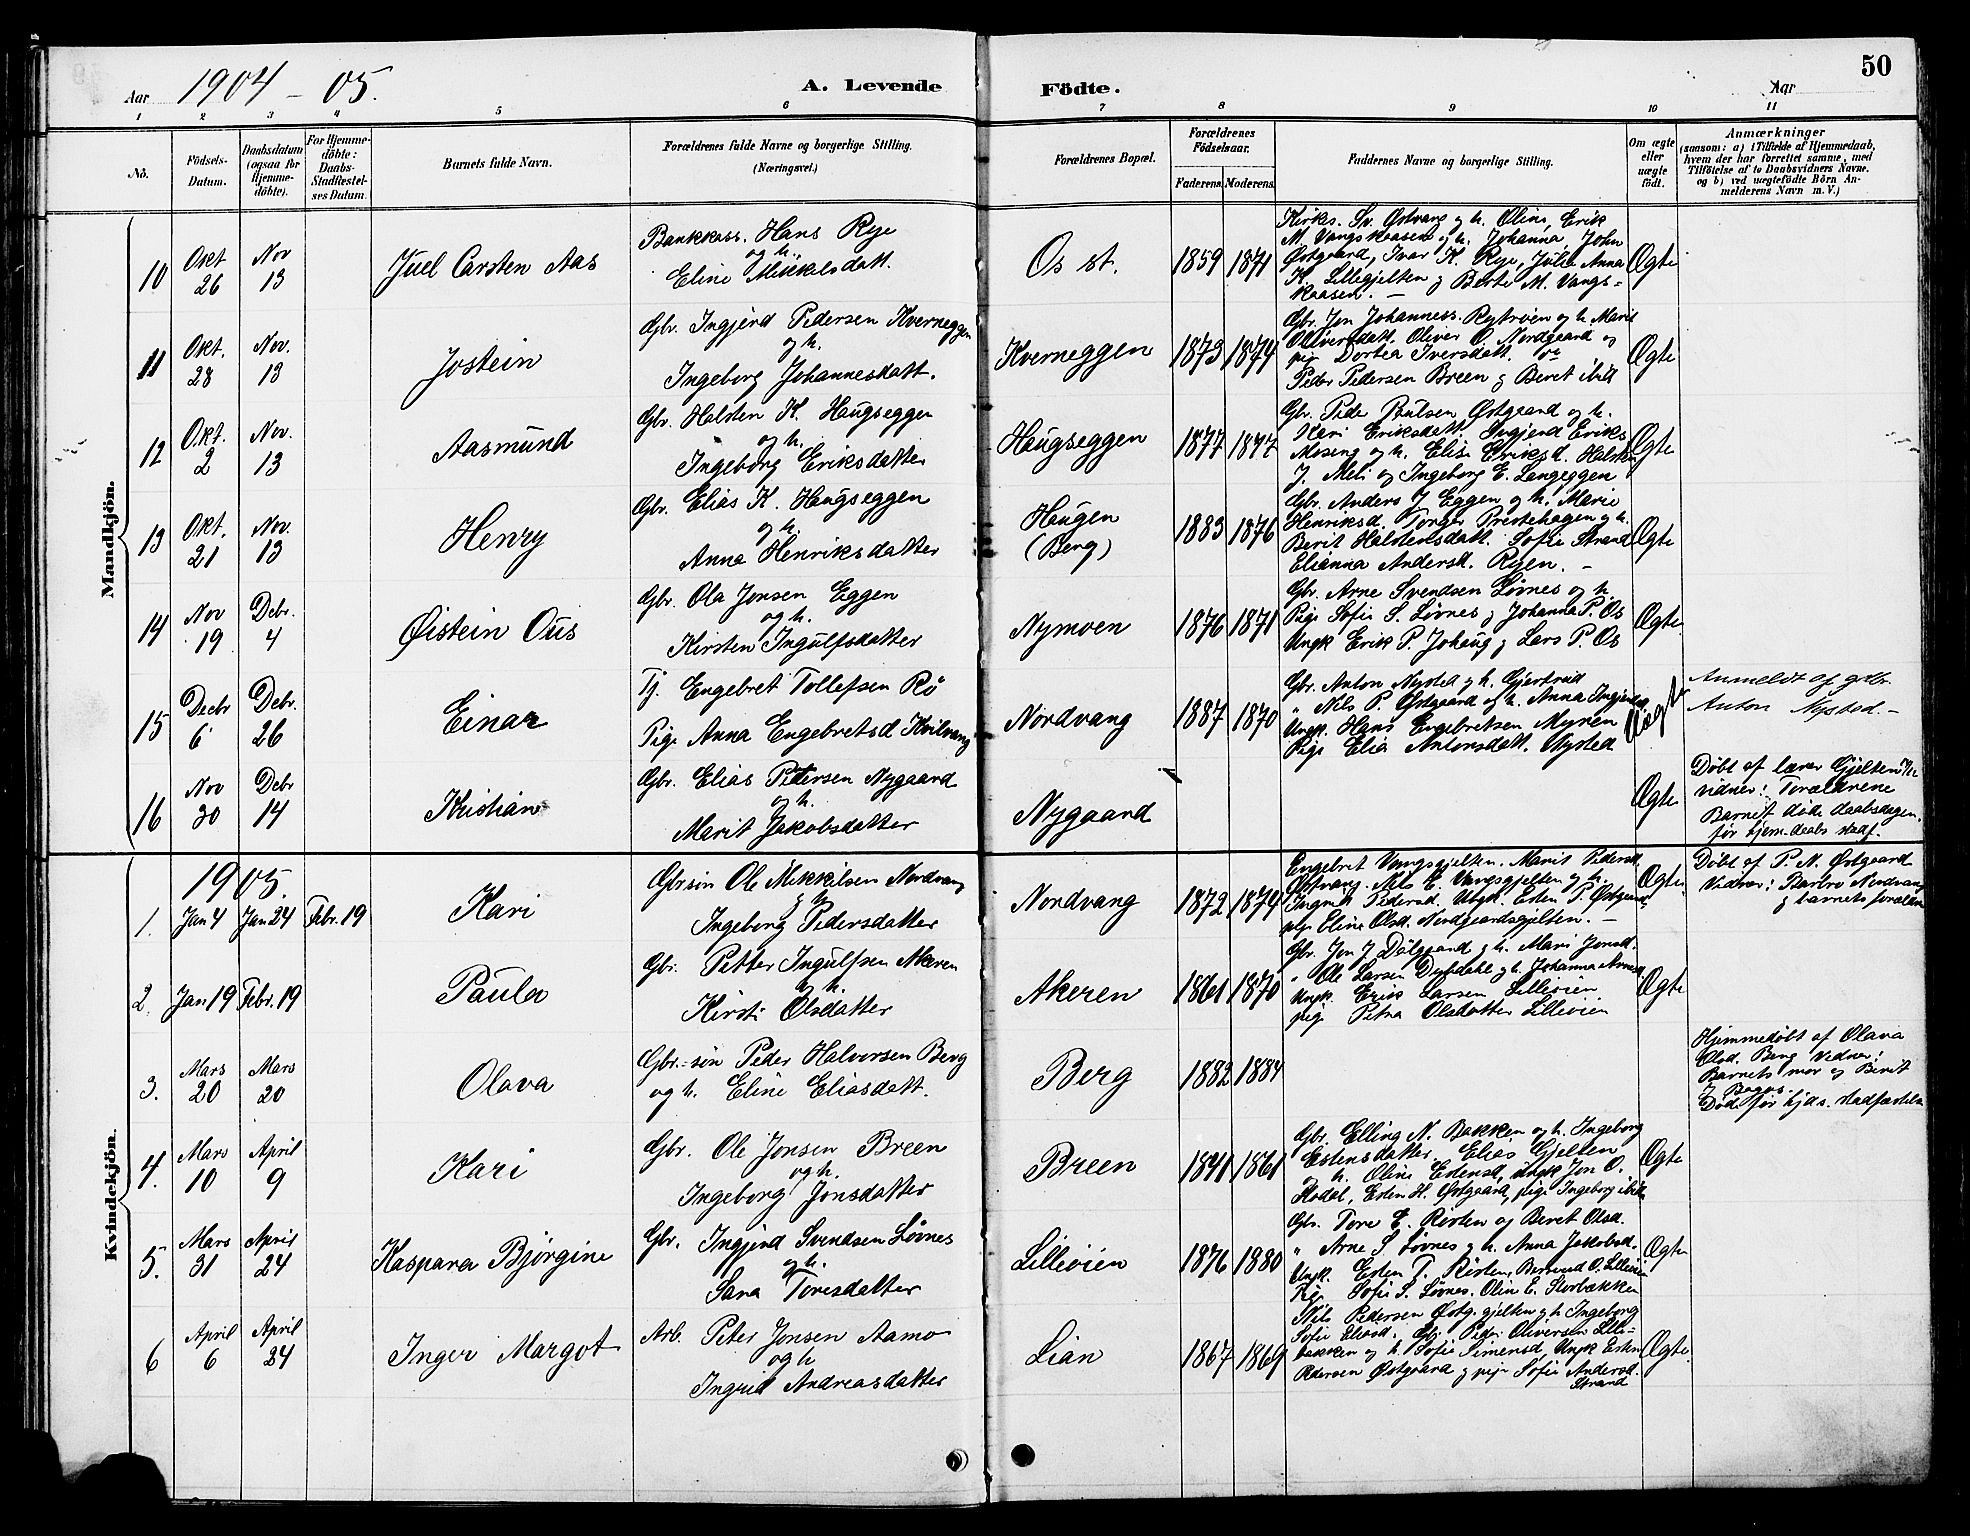 50
Aar 1904 - 05.
A. Levende Födte.
Aar
1 2 3 4 5 6 7 8 9 10 11
No.
Födsels-Datum.
Daabsdatum (ogsaa for Hjemme-döbte).
For Hjemme-döbte: Daabs-Stadfæstel-ses Datum.
Barnets fulde Navn.
Forældrenes fulde Navne og borgerlige Stilling. (Næringsvei.)
Forældrenes Bopæl.
Forældrenes Födselsaar.
Faderens. Moderens.
Faddernes Navne og borgerlige Stilling.
Om ægte eller uægte födt.
Anmærkninger
(saasom: a) i Tilfælde af Hjemmedaab,
hvem der har forrettet samme, med
Tilföielse af to Daabsvidners Navne.
og b) ved uægtefödte Börn An-
melderens Navn m. V.)
Mandkjön.
10 Okt 26 Nov 13 Juel Carsten Aas
Bankkass. Hans Rye
og h.
Eline Mikkelsdatt.
Os st. 1859 1871
Kirks. Sv. Østvang og h. Oline, Erik
M. Vangskaasen og h. Johanna, John
Østgaard, Ivar K. Rye, Julie Anna
K. Lillegjelten og Berte M. Vangs=
kaasen. —
Ægte
11 Okt. 28 Nov. 13 Jostein
Gbr. Ingjerd Pedersen Kverneggen
og h.
Ingeborg Johannesdatt.
Kverneggen 1873 1874
Gbr. Jon Johanness. Rytrøen og h. Marit
Oliversdatt. Oliver O. Nordgaard og
pig. Dortea Iversdatt.
Peder Pedersen Breen og Beret ibid
Ægte
12 Okt. 2 Nov. 13 Aasmund
Gbr. Halsten K. Haugseggen
og h.
Ingeborg Eriksdatter
Haugseggen 1877 1877
Gbr. Peder Paulsen Østgaard og h.
Kari Eriksdatt. Ingjerd Eriks
Moseng og h. Elise Eriksd. Halsten
J. Meli og Ingeborg E. Langeggen
Ægte
13 Okt. 21 Nov. 13 Henry
Gbr. Elias K. Haugseggen
og h.
Anna Henriksdatter
Haugen
(Berg)
1883 1876
Gbr. Anders J Eggen og h. Marie
Henriksd. Torger Prestehagen og h.
Berit Halstensdatt. Sofie Strand
Elianna Andersd. Ryen. —
Ægte
14 Nov 19 Debr. 4 Øistein Ous
Gbr. Ola Jonsen Eggen
og h.
Kirsten Ingulfsdatter
Nymoen 1876 1871
Gbr. Arne Svendsen Løvnes og h.
Pige Sofie S. Løvnes og Johanna P. Os
Ungk Erik P. Johaug og Lars P. Os
Ægte
15 Decbr 6 Debr. 26 Einar
Tj. Engebret Tollefsen Rø
Pige Anna Engebretsd Kvilvang
Nordvang 1887 1870
Gbr. Anton Nysted og h. Gjertrud
" Nils P. Østgaard og h. Anna Ingjerdsd.
Ungk. Hans Engebretsen Myren
Pige Elia Antonsdatt. Nysted
Uægte
Anmeldt af grbr.
Anton Nysted. —
16 Nov 30 Debr 14 Kristian
Gbr. Elias Pedersen Nygaard
og h.
Marit Jakobsdatter
Nygaard
Ægte
Døbt af lærer Gjelten
vidner: Forældrene
Barnet døde daabsdagen,
før hjem.daabs stadf.
Kvindekjön.
1905.
1. Jan 4 Jan 24 Febr. 19 Kari
Gbrsøn Ole Mikkelsen Nordvang
og h.
Ingeborg Pedersdatter
Nordvang 1872 1874
Engebret Vangsgjelten. Marit Pedersd.
Østvang. Nils E. Vangsgjelten og h.
Ingrid Pedersd. Ubgk. Esten P. Østgaard
plg Eline Olsd. Nordgaardsgjelten. —
Ægte
Døbt af P. N. Østgaard
Vidner: Barbro Nordvang
og barnets forældre
2. Jan 19 Febr. 19 Paula
Gbr. Petter Ingulfsen Akeren
og h.
Kirsti Olsdatter
Akeren 1861 1870
Gbr. Jon J Dalgaard og h. Mari Jonsd.
" Ole Larsen Dybdahl og h. Johanna Arnesd.
Ungk. Erik Larsen Lilleøien
pige Petra Olsdatter Lilleøien
Ægte
3. Mars 20 Mars 20 Olava
Gbr.=søn Peder Halvorsen Berg
og h. Eline Eliasdatt.
Berg 1882 1884
Hjemmedøbt af Olava
Olsd. Berg Vidner:
Barnets mor og Beret
J. Bagaas.
Død før hjds. stadfæstelse
4. Mars 10 April 9 Kari
Gbr. Ole Jonsen Breen
og h.
Ingeborg Jonsdatter
Breen 1841 1861
Gbr. Elling N. Bakken og h. Ingeborg
Estensdatter, Elias Gjelten
og h. Oline Estensd, ungk Jon O.
Hodal, Esten H. Østgaard, pige Ingeborg ibid
Ægte
5. Mars 31 April 24 Kaspara Bjørgine
Gbr. Ingjerd Svendsen Løvnes
og h.
Sara Toresdatter
Lilleøien 1876 1880
Gbr. Tore E. Risten og Beret Olsd.
" Arne S Løvnes og h. Anna Jakobsd.
Ungk. Esten T. Risten, Bersvend O. Lilleøien
Pg. Sofie S. Løvnes. Olin E. Storbækken
Ægte
6 April 6 April 24 Inger Margot
Arb. Peter Jonsen Aamo
og h
Ingrid Andreasdatter
Lian 1867 1869
Nils Pedersen Østg.gjelten og h Ingeborg
Sofie Eliasd. Gbr. Peder Oliversen Lille=
bakken og h Sofie Simensd, Ungk Esten
Pedersen Østgaard og pige Sofie Andersd.
Strand
Ægte